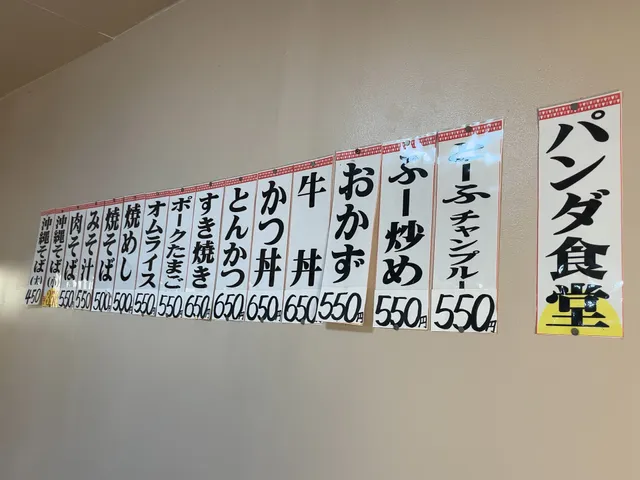 パンダ食堂
とーふチャンプルー 550円
ふー炒め 550円
おかず 550円
牛丼 650円
かつ丼 650円
とんかつ 650円
すき焼き 650円
ポークたまご 550円
オムライス 550円
焼めし 500円
焼そば 500円
みそ汁 550
肉そば 550
沖縄そば(小)
沖縄そば(大) 450